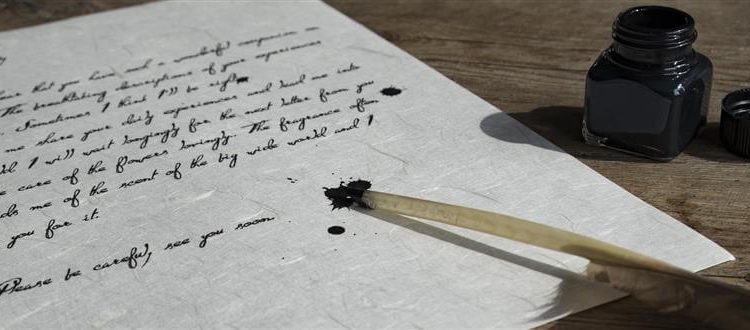 have that you have and a wonderful companion
The breathtaking descriptions of your experiences
Sometimes I think I'll be right
me share your daily experiences and lead me into
I will wait longingly for the next letter from you
care of the flowers lovingly. The fragrance often
me of the scent of the big wide world and I
you for it.
Please be careful, see you soon